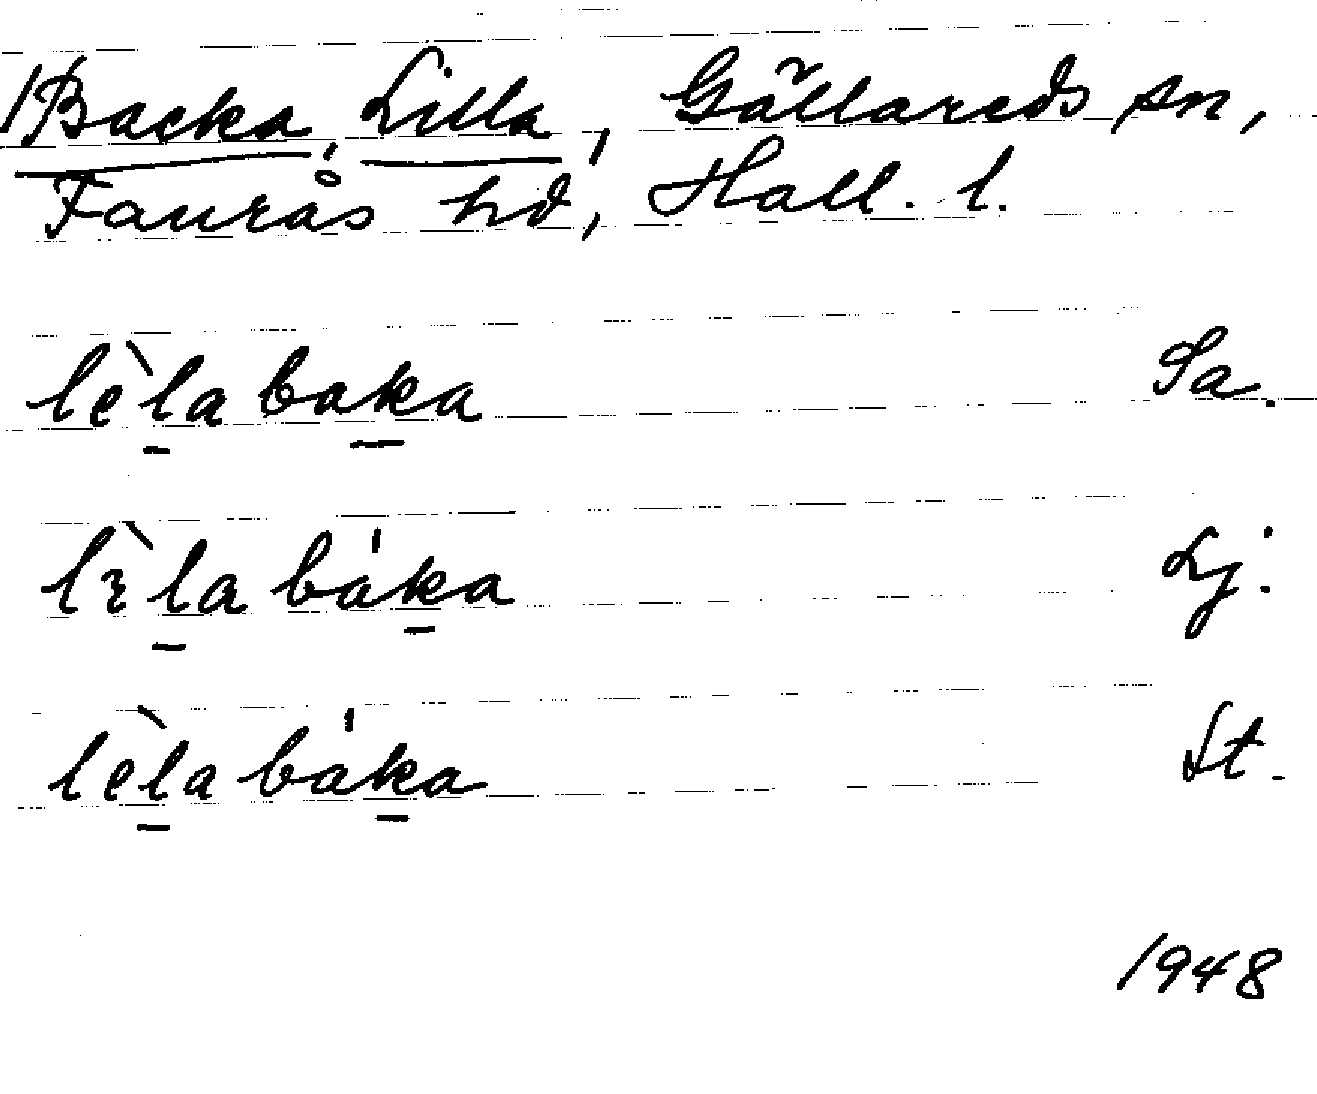 1) Backa, Lilla, Gällareds sn,
Faurås hd, Hall. l.
lèla baka Sa.
lɩ̀la báka Lj.
lèla báka St.
1948